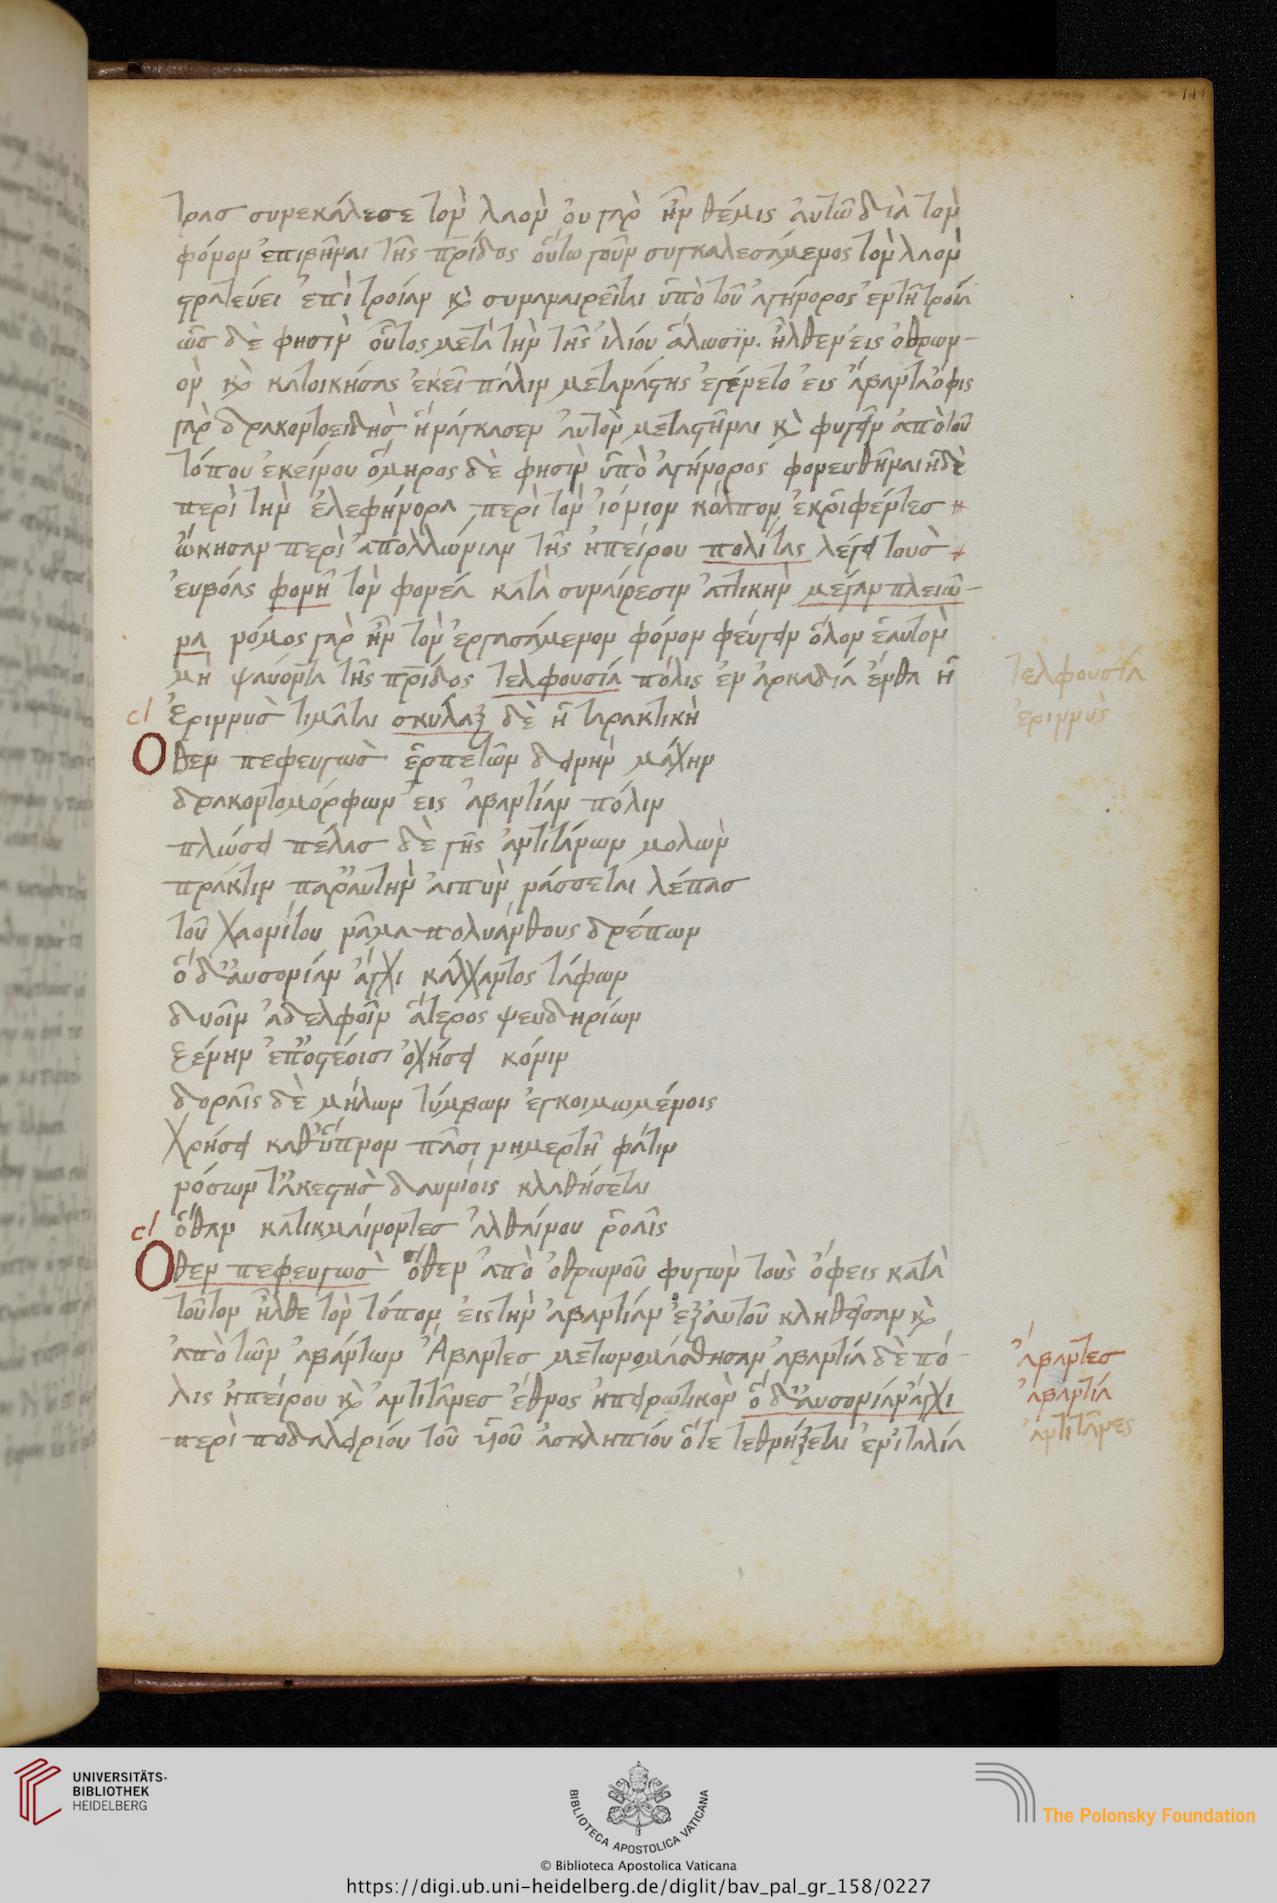 τρας συνεκάλεσε τὸν λαὸν οὐ γὰρ ἦν θέμις αὐτῶ διὰ τὸν
φόνον ἐπιβῆναι τῆς πρίδος οὕτω γοῦν συγκαλεσάμενος τὸν λαὸν
στρατεύει ἐπὶ τροίαν κ συναναιρεῖται ὑπὸ τοῦ ἀγήνορος ἐν τῆ τροία
ὡς δὲ φησὶν οὗτος μετὰ τὴν τῆς ἰλίου ἅλωσιν. ἦλθεν εἰς ὀθρων-
ὸν κ κατοικήσας ἐκεῖ πάλιν μετανάστης ἐγένετο εἰς ἄβαντα ὄφις
γὰρ δρακοντοειδὴς ἠνάγκασεν αὐτὸν μεταστῆναι κ φυγεῖν ἀπὸ τοῦ
τόπου ἐκείνου ὅμηρος δὲ φησὶν ὑπὸ ἀγήνορος φονευθῆναι ἠδὲ
περὶ τὴν ἐλεφήνορα περὶ τὸν ἰόνιον κόλπον ἐκριφέντες
ὤκησαν περὶ ἀπολλωνίαν τῆς ἠπείρου πολίτας λέγει τοὺς
εὐβόας φονῆ τὸν φονέα κατὰ συναίρεσιν ἀττικὴν μέγαν πλειῶ-
να νόμος γὰρ ἦν τὸν ἐργασάμενον φόνον φεύγειν ὅλον ἑαυτὸν
μὴ ψαύοντα τῆς πρίδος τελφουσία πόλις ἐν ἀρκαδία ἔνθα ἡ
ἐριννὺς τιμᾶται σκύλαξ δὲ ἡ ταρακτικὴ
Ὅθεν πεφευγὼς ἑρπετῶν δεινὴν μάχην
δρακοντομόρφων εἰς ἀβαντίαν πόλιν
πλώσει πέλας δὲ γῆς ἀντιτάνων μολὼν
πράκτιν παρ' αὐτὴν αἰπὺν νάσσεται λέπας
τοῦ χαονίτου νᾶμα πολυάνθους δρέπων
ὁ δ' αὐσονίαν ἄγχι κάλχαντος τάφων
δυοῖν ἀδελφοῖν ἅτερος ψευδηρίων
ξένην ἐπ' ὀστέοισι ὀχήσει κόνιν
δοραῖς δὲ μήλων τύμβων ἐγκοιμωμένοις
χρήσει καθ' ὕπνον πᾶσι νημερτῆ φάτιν
νόσων τ' ἀκεστὴς δαυνίοις κλαθήσεται
ὅθαν κατικμαίνοντες ἀλθαίνου ῥοαῖς
Ὅθεν πεφευγὼς ὅθεν ἀπὸ ὀθρωνοῦ φυγὼν τοὺς ὄφεις κατὰ
τοῦτον ἦλθε τὸν τόπον εἰς τὴν ἀβαντίαν ἐξ αὐτοῦ κληθεῖσαν κ
ἀπὸ τῶν ἀβάντων Ἄβαντες μετωνομάσθησαν ἀβαντία δὲ πό-
λις ἠπείρου κ ἀντιτᾶνες ἔθνος ἠπειρωτικὸν ὁ δ' αὐσονίαν ἄγχι
περὶ ποδαλειρίου τοῦ υἱοῦ ἀσκληπίου ὅτε τεθνήξεται ἐν ἰταλία
τελφουσία
ἐριννὺς
ἄβαντες
ἀβαντία
ἀντιτᾶνες
UNIVERSITÄTS-
BIBLIOTHEK
HEIDELBERG
BIBLIOTECA APOSTOLICA VATICANA
© Biblioteca Apostolica Vaticana
The Polonsky Foundation
https://digi.ub.uni-heidelberg.de/diglit/bav_pal_gr_158/0227